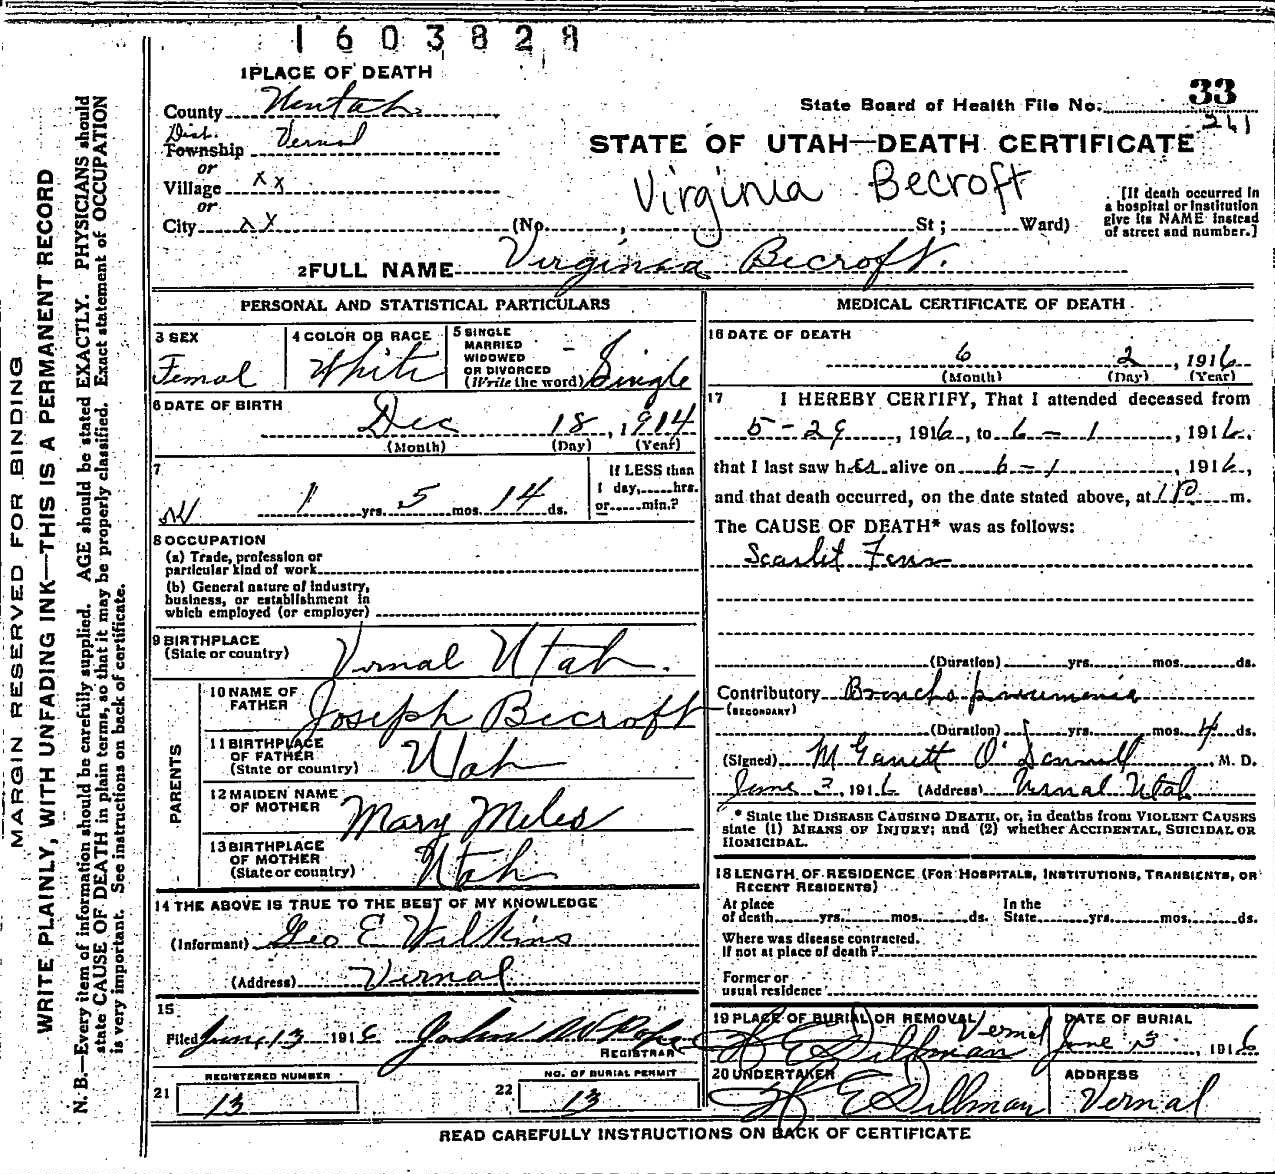 1603828
1 PLACE OF DEATH
County Uintah
State Board of Health File No. 33
261
Dist.
Township Vernal
STATE OF UTAH—DEATH CERTIFICATE
or
Village xx
Virginia Becroft
[If death occurred in
a hospital or institution
give its NAME instead
of street and number.]
or
City xx (No. , St ; Ward)
2 FULL NAME Virginia Becroft.
PERSONAL AND STATISTICAL PARTICULARS
3 SEX
Femal
4 COLOR OR RACE
White
5 SINGLE
MARRIED
WIDOWED
OR DIVORCED
(Write the word) Single
6 DATE OF BIRTH
Dec 18, 1914
(Month) (Day) (Year)
7
1 yrs. 5 mos. 14 ds.
If LESS than
1 day, hrs.
or min.?
8 OCCUPATION
(a) Trade, profession or
particular kind of work
(b) General nature of industry,
business, or establishment in
which employed (or employer)
9 BIRTHPLACE
(State or country) Vernal Utah.
PARENTS
10 NAME OF
FATHER Joseph Becroft
11 BIRTHPLACE
OF FATHER
(State or country) Utah
12 MAIDEN NAME
OF MOTHER Mary Miles
13 BIRTHPLACE
OF MOTHER
(State or country) Utah
14 THE ABOVE IS TRUE TO THE BEST OF MY KNOWLEDGE
(Informant) Geo E Wilkins
(Address) Vernal
15
Filed June 13 1916 John N Pope
REGISTRAR
REGISTERED NUMBER
21 13
NO. OF BURIAL PERMIT
22 13
MEDICAL CERTIFICATE OF DEATH
16 DATE OF DEATH
6 2, 1916
(Month) (Day) (Year)
17 I HEREBY CERTIFY, That I attended deceased from
5-29, 1916, to 6-1, 1916,
that I last saw her alive on 6-1, 1916,
and that death occurred, on the date stated above, at 1 P m.
The CAUSE OF DEATH* was as follows:
Scarlet Fever
(Duration) yrs. mos. ds.
Contributory Broncho pneumonia
(SECONDARY)
(Duration) yrs. mos. 4 ds.
(Signed) M Garrett O'Donnell M. D.
June 3, 1916 (Address) Vernal Utah
* State the DISEASE CAUSING DEATH, or, in deaths from VIOLENT CAUSES
state (1) MEANS OF INJURY; and (2) whether ACCIDENTAL, SUICIDAL OR
HOMICIDAL.
18 LENGTH OF RESIDENCE (FOR HOSPITALS, INSTITUTIONS, TRANSIENTS, OR
RECENT RESIDENTS)
At place In the
of death yrs. mos. ds. State yrs. mos. ds.
Where was disease contracted.
If not at place of death?
Former or
usual residence
19 PLACE OF BURIAL OR REMOVAL
Vernal
DATE OF BURIAL
June 3, 1916
20 UNDERTAKER
E Dillman
ADDRESS
Vernal
READ CAREFULLY INSTRUCTIONS ON BACK OF CERTIFICATE
MARGIN RESERVED FOR BINDING
WRITE PLAINLY, WITH UNFADING INK—THIS IS A PERMANENT RECORD
N. B.—Every item of information should be carefully supplied. AGE should be stated EXACTLY. PHYSICIANS should
state CAUSE OF DEATH in plain terms, so that it may be properly classified. Exact statement of OCCUPATION
is very important. See instructions on back of certificate.